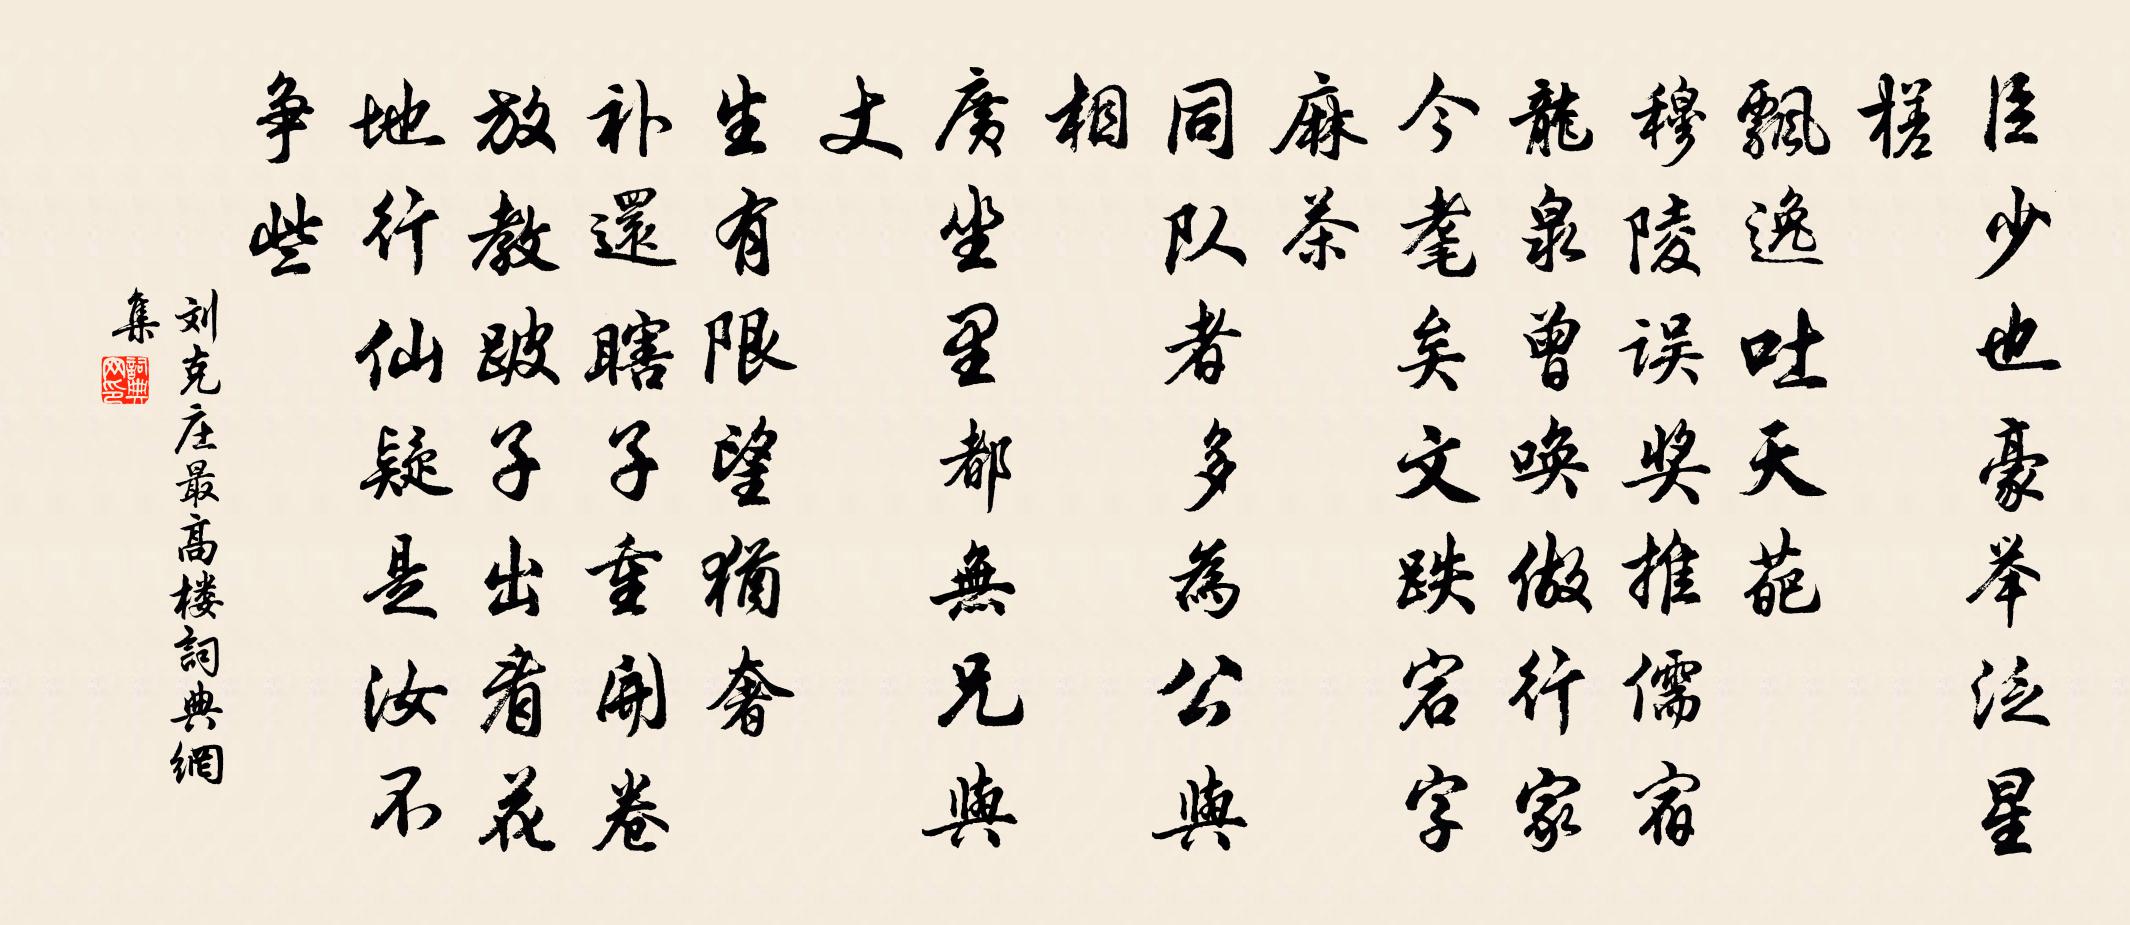 臣少也豪举泛星
槎
飄逸吐天葩
穆陵误奖推儒宿
龍泉曾唤做行家
今耄矣文跌宕字
麻茶
同队者多為公與
相
廣坐里都無兄與
丈
生有限望犹奢
补還瞎子重開卷
放教跛子出看花
地行仙疑是汝不
争些
刘克庄最高楼詞典網
集
詞典網印